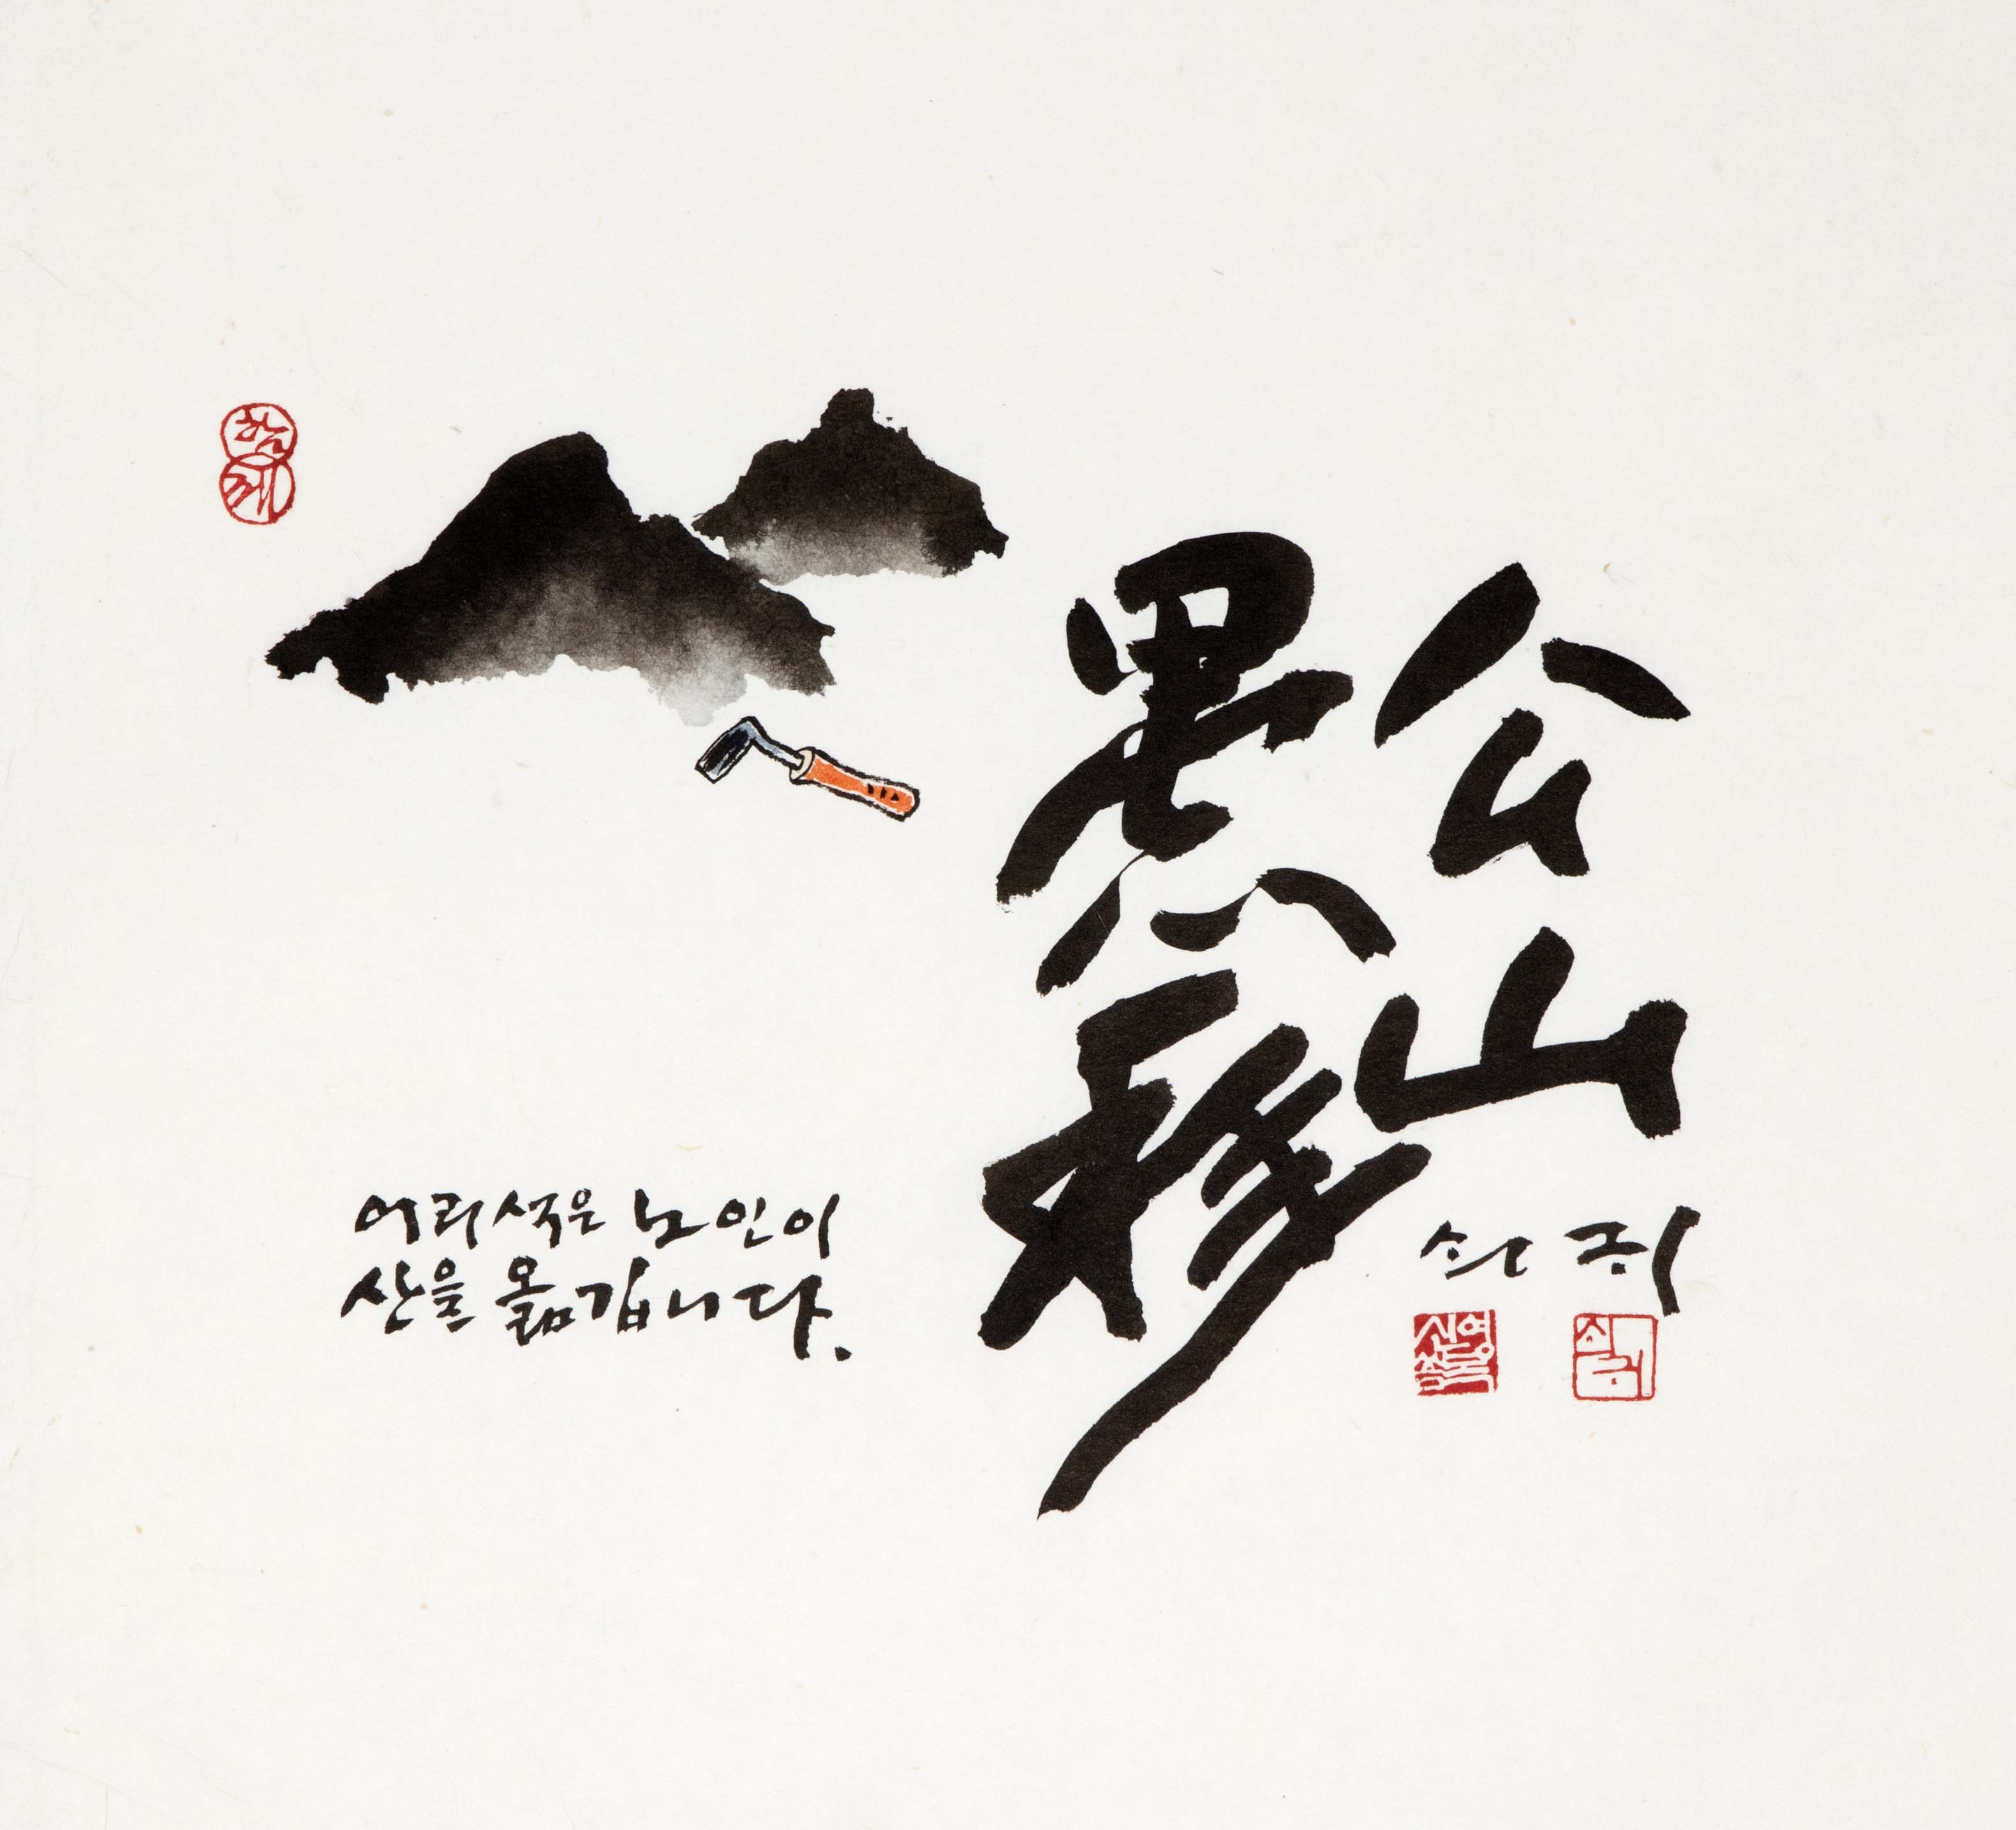 愚公
移山
어리석은 노인이
산을 옮깁니다.
쇠귀
함께